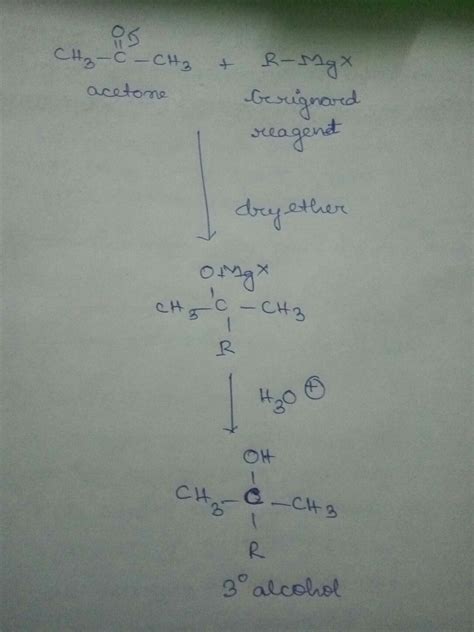 O
CH3-C-CH3 + R-MgX
acetone Gerignard
reagent
dry ether
OMgX
CH3-C-CH3
R
H3O+
OH
CH3-C-CH3
R
3° alcohol